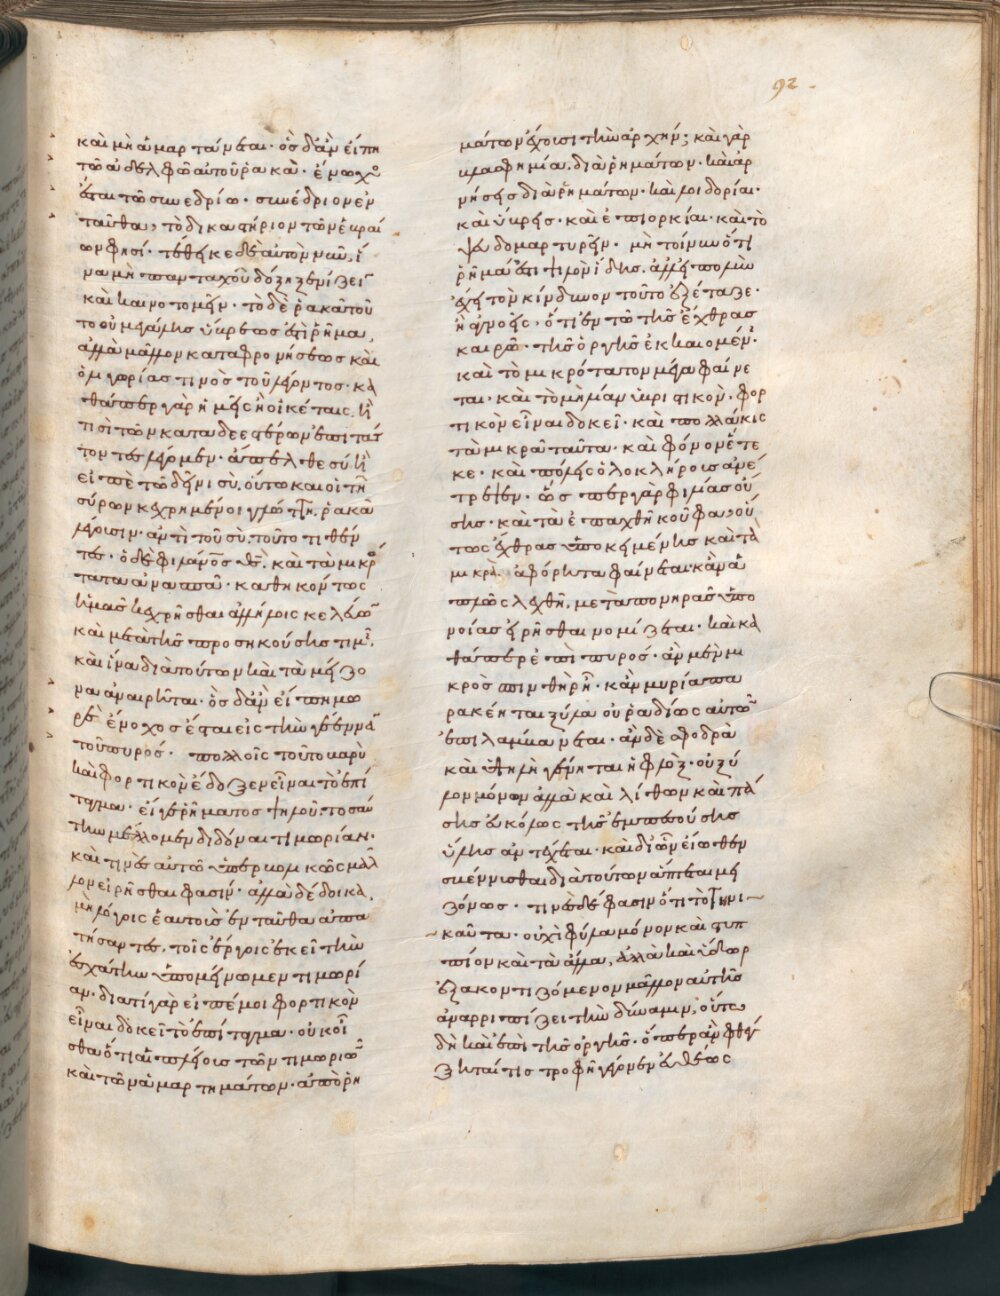 καὶ μὴ ἁμαρτάνεται· ὃς δ' ἂν εἴπη
τῶ ἀδελφῶ αὐτοῦ ῥακὰ· ἔνοχος
ἔσται τῶ συνεδρίω· συνέδριον ἐν
ταῦθα, τὸ δικαστήριον τῶν ἑβραί
ων φησί· τέθηκε δὲ αὐτὸ νῦν, ἵ
να μὴ πανταχοῦ δόξη ξενίζειν
καὶ καινοτομεῖν· τὸ δὲ ῥακὰ τοῦ
το οὐ μεγάλης ὕβρεως ἐστὶ ῥῆμα,
ἀλλὰ μᾶλλον καταφρονήσεως καὶ
ὀλιγωρίας τινὸς τοῦ λέγοντος· κα
θάπερ γὰρ ἡμεῖς ἢ οἰκέταις, ἤ
τισι τῶν καταδεεστέρων ἐπιτάτ
τοντες λέγομεν· ἄπελθε σύ, ἢ
εἰπὲ τῶ δεῖνι σύ. οὕτω καὶ οἱ τῆ
σύρων κεχρημένοι γλώττη, ῥακὰ
λέγουσιν· ἀντὶ τοῦ σύ. τοῦτο τιθέν
τες· ὁ δὲ φιλάνος θς, καὶ τὰ μικρό
τατα ἀνασπᾶ· καθηκόντως
ἡμᾶς κεχρῆσθαι ἀλλήλοις κελεύων
καὶ μετὰ τῆς προσηκούσης τιμῆς,
καὶ ἵνα διὰ τούτων καὶ τὰ μείζο
να ἀναιρῆται· ὃς δ' ἂν εἴπη μω
ρὲ ἔνοχος ἔσται εἰς τὴν γέενναν
τοῦ πυρός· πολλοῖς τοῦτο βαρὺ
καὶ φορτικὸν ἔδοξεν εἶναι τὸ ἐπί
ταγμα· εἴγε ῥήματος ψιλοῦ τοσαύ
την μέλλομεν διδόναι τιμωρίαν·
καὶ τινὲς αὐτὸ ὑπερβολικῶς μᾶλ
λον εἰρῆσθαι φασίν· ἀλλὰ δέδοικα,
μὴ λόγοις ἑαυτοὺς ἐνταῦθα ἀπα
τήσαντες, τοῖς ἔργοις ἐκεῖ τὴν
ἐσχάτην ὑπομείνωμεν τιμωρί
αν· διατί γὰρ εἰπέ μοι φορτικὸν
εἶναι δοκεῖ τὸ ἐπίταγμα· οὐκ οἶ
σθα ὅτι αἱ πλείους τῶν τιμωριῶν
καὶ τῶν ἁμαρτημάτων· ἀπὸ ῥη
92
μάτων ἔχουσι τὴν ἀρχήν; καὶ γὰρ
βλασφημία, διὰ ῥημάτων· καὶ ἀρ
νήσεις διὰ ῥημάτων· καὶ λοιδορίαι·
καὶ ὕβρεις· καὶ ἐπιορκίαι· καὶ τὸ
ψευδομαρτυρεῖν· μὴ τοίνυν ὅτι
ῥῆμά ἐστι ψιλὸν ἴδης. ἀλλ' εἰ πολὺν
ἔχει τὸν κίνδυνον τοῦτο ἐξέταζε·
ἢ ἀγνοεῖς, ὅτι ἐν τῶ τῆς ἔχθρας
καιρῶ· τῆς ὀργῆς ἐκκαιομένης·
καὶ τὸ μικρότατον μέγα φαίνε
ται· καὶ τὸ μὴ λίαν ὑβριστικόν. φορ
τικὸν εἶναι δοκεῖ· καὶ πολλάκις
τὰ μικρὰ ταῦτα· καὶ φόνον ἔτε
κε· καὶ πόλεις ὁλοκλήρους ἀνέ
τρεψεν· ὥσπερ γὰρ φιλίας οὔ
σης· καὶ τὰ ἐπαχθῆ κοῦφα, οὕ
τως ἔχθρας ὑποκειμένης καὶ τὰ
μικρὰ ἀφόρητα φαίνεται· κἂν ἁ
πλῶς λεχθῆ, μετὰ πονηρᾶς ὑπο
νοίας εἰρῆσθαι νομίζεται· καὶ κα
θάπερ ἐπὶ πυρός· ἂν μὲν μι
κρὸς σπινθὴρ ἦ· κἂν μυρία πα
ρακέηται ξύλα οὐ ραδίως αὐτῶν
ἐπιλαμβάνεται· ἂν δὲ σφοδρὰ
καὶ ὑψηλὴ γένηται ἡ φλόξ· οὐ ξύ
λων μόνων ἀλλὰ καὶ λίθων καὶ πά
σης εὐκόλως τῆς ἐμπεσούσης
ὕλης ἀντέχεται· καὶ δι' ὧν εἴωθεν
σβέννυσθαι διὰ τούτων ἅπτεται μει
ζόνως· τινὲς δέ φασιν ὅτι τὸ τηνι
καῦτα· οὐχὶ ξύλα μόνον καὶ στυπ
πίον καὶ τὰ ἄλλα, ἀλλὰ καὶ ὕδωρ
ἐξακοντιζόμενον μᾶλλον αὐτῆς
ἀναρριπίζει τὴν δύναμιν, οὕτω
δὴ καὶ ἐπὶ τῆς ὀργῆς· ὅπερ ἂν φθέγ
ξηταί τις τροφὴ γέγονεν εὐθέως